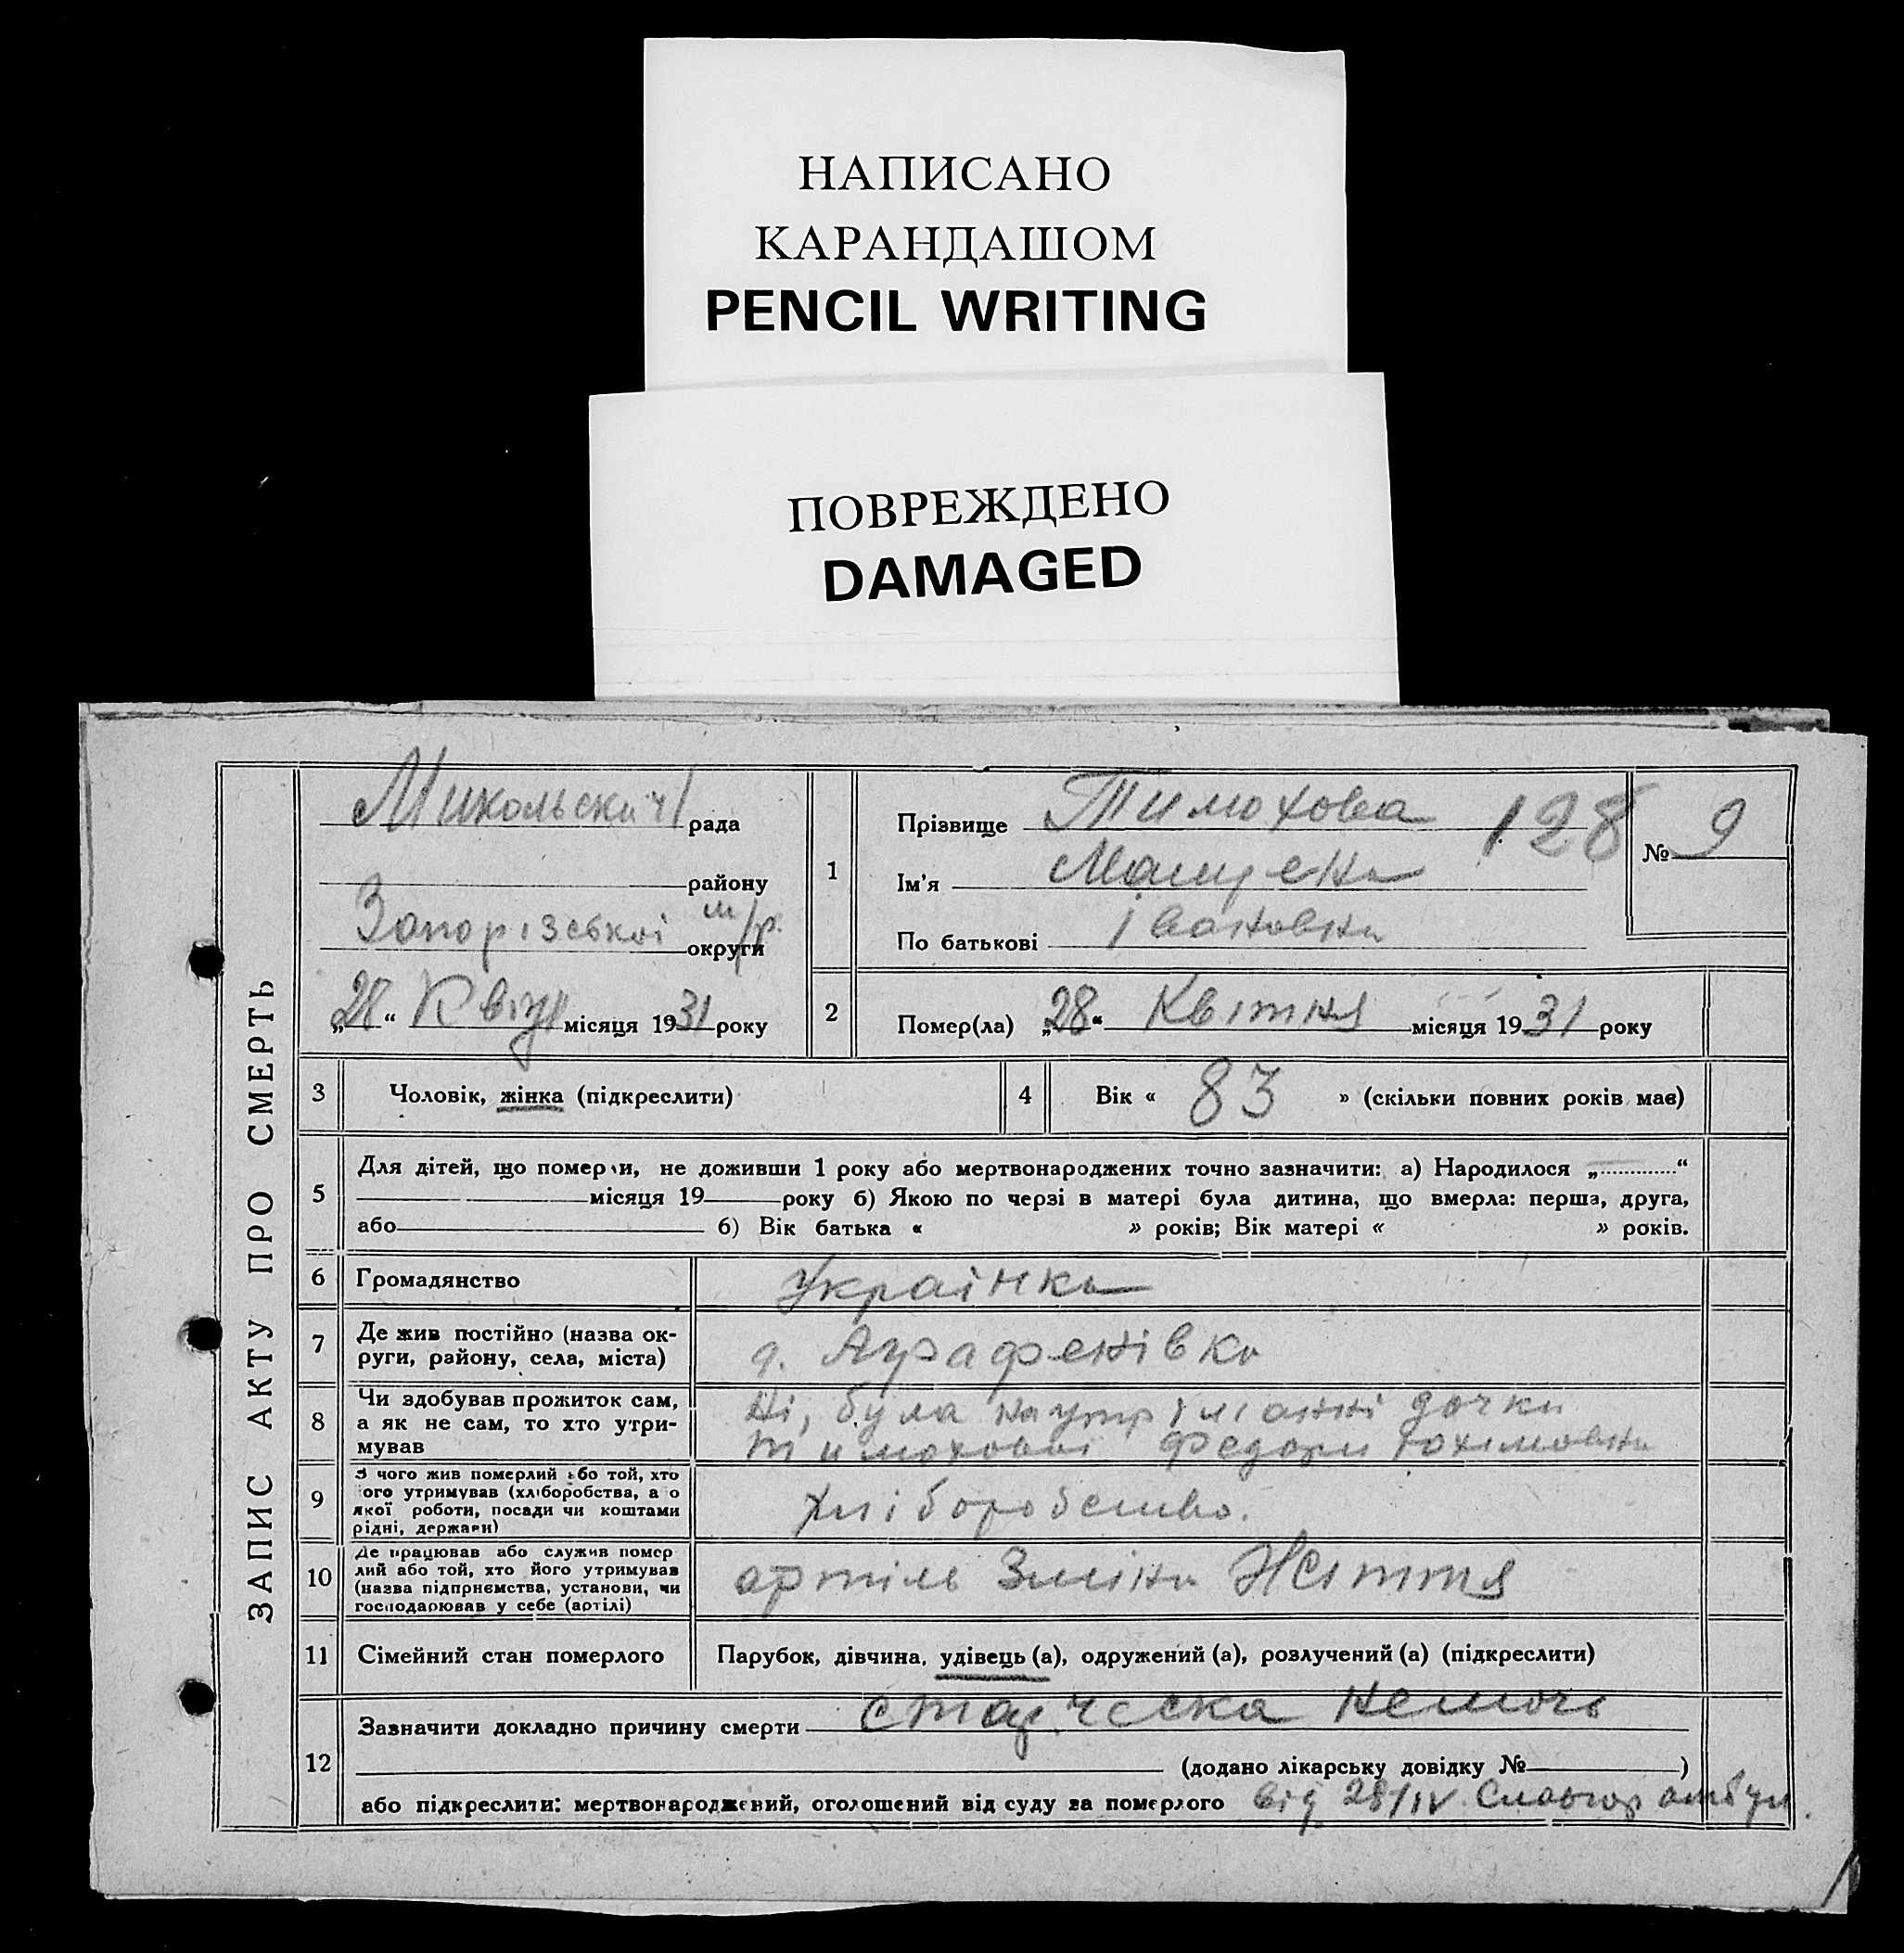 НАПИСАНО
КАРАНДАШОМ
PENCIL WRITING
ПОВРЕЖДЕНО
DAMAGED
ЗАПИС АКТУ ПРО СМЕРТЬ
Микольська рада
району
Запорізської м/р. округи
„28“ Квіт місяця 1931 року
1
Прізвище Тимохова 128
Ім'я
По батькові Івановна
№ 9
2
Помер(ла) „28“ Квітня місяця 1931 року
3
Чоловік, жінка (підкреслити)
4
Вік « 83 » (скільки повних років має)
5
Для дітей, що померли, не доживши 1 року або мертвонароджених точно зазначити: а) Народилося „ “
місяця 19 року б) Якою по черзі в матері була дитина, що вмерла: перша, друга,
або б) Вік батька « » років; Вік матері « » років.
6
Громадянство
Українка
7
Де жив постійно (назва ок-
руги, району, села, міста)
д. Аграфенівка
8
Чи здобував прожиток сам,
а як не сам, то хто утри-
мував
Ні, була на утриманні дочки
Тимохової Федори Юхимовни
9
З чого жив померлий або той, хто
ого утримував (хліборобства, а о
якої роботи, посади чи коштами
рідні, держави)
Хліборобство.
10
Де працював або служив помер
лий або той, хто його утримував
(назва підприємства, установи, чи
господарював у себе (артілі)
артіль Зміна Життя
11
Сімейний стан померлого
Парубок, дівчина, удівець (а), одружений (а), розлучений (а) (підкреслити)
12
Зазначити докладно причину смерти старческа немочь
(додано лікарську довідку № )
або підкреслити: мертвонароджений, оголошений від суду за померлого від 28/IV Славгор амбул.